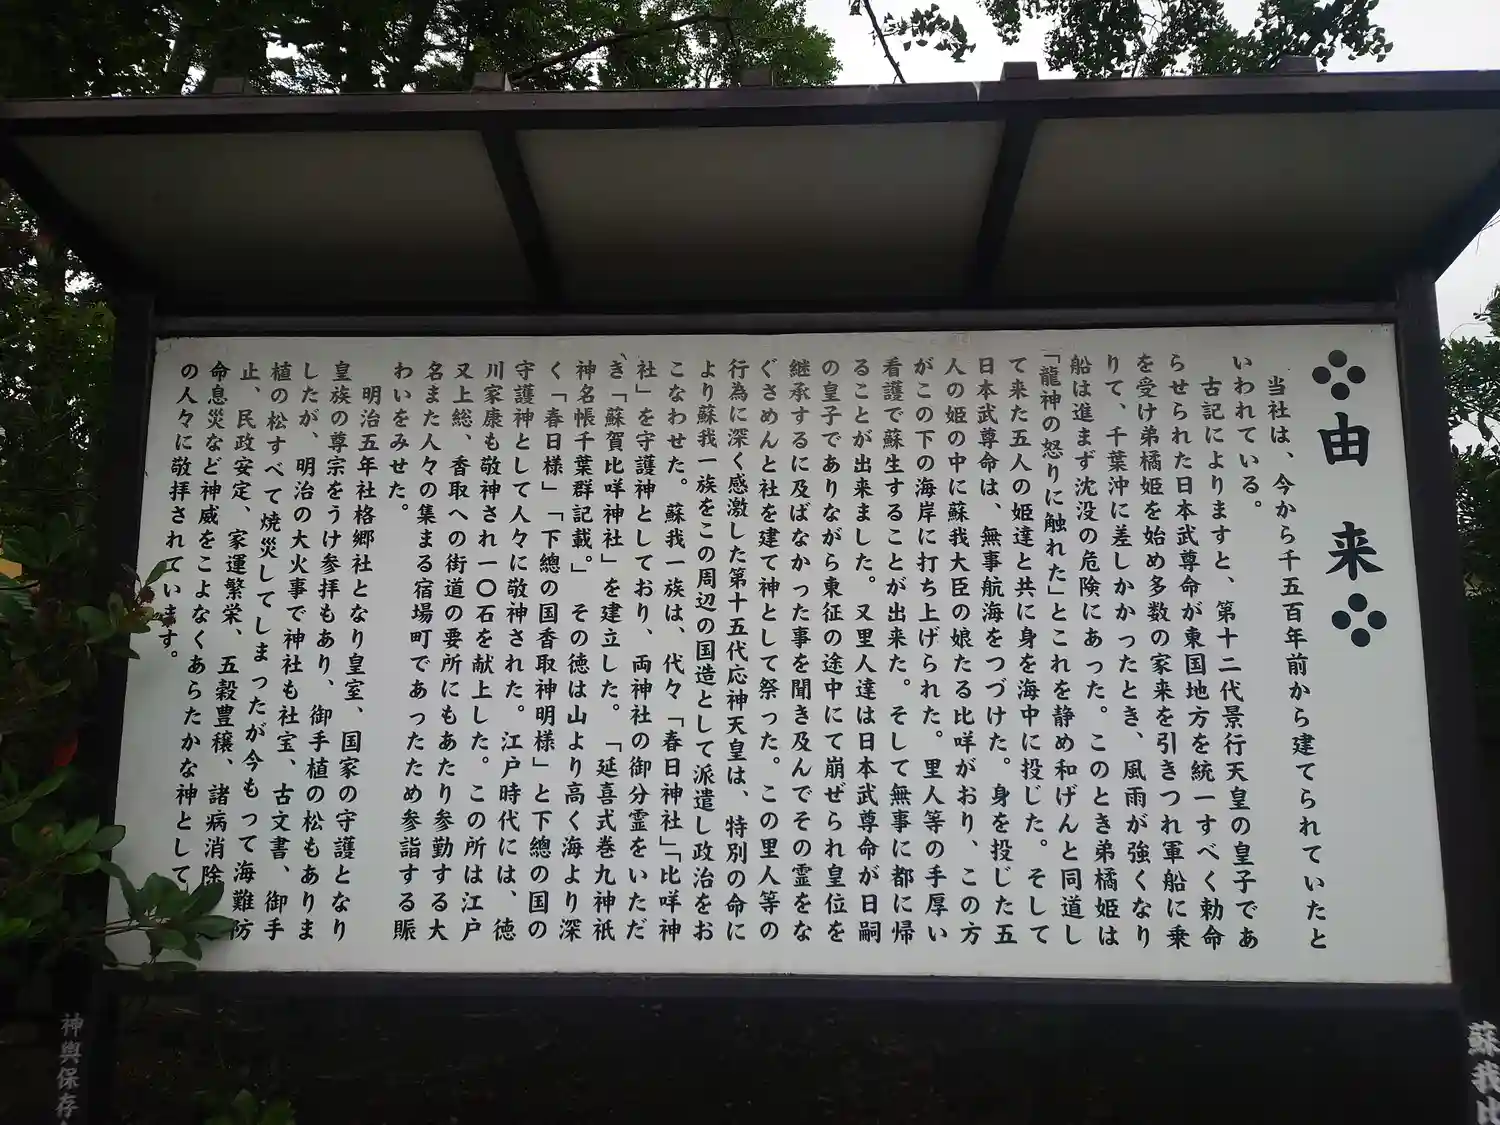 由来
当社は、今から千五百年前から建てられていたと
いわれている。
古記によりますと、第十二代景行天皇の皇子であ
らせられた日本武尊命が東国地方を統一すべく勅命
を受け弟橘姫を始め多数の家来を引きつれ軍船に乗
りて、千葉沖に差しかかったとき、風雨が強くなり
船は進まず沈没の危険にあった。このとき弟橘姫は
「龍神の怒りに触れた」とこれを静め和げんと同道し
て来た五人の姫達と共に身を海中に投じた。そして
日本武尊命は、無事航海をつづけた。身を投じた五
人の姫の中に蘇我大臣の娘たる比咩がおり、この方
がこの下の海岸に打ち上げられた。里人等の手厚い
看護で蘇生することが出来た。そして無事に都に帰
ることが出来ました。又里人達は日本武尊命が日嗣
の皇子でありながら東征の途中にて崩ぜられ皇位を
継承するに及ばなかった事を聞き及んでその霊をな
ぐさめんと社を建て神として祭った。この里人等の
行為に深く感激した第十五代応神天皇は、特別の命に
より蘇我一族をこの周辺の国造として派遣し政治をお
こなわせた。蘇我一族は、代々「春日神社」「比咩神
社」を守護神としており、両神社の御分霊をいただ
き、「蘇賀比咩神社」を建立した。「延喜式巻九神祇
神名帳千葉群記載。」その徳は山より高く海より深
く「春日様」「下總の国香取神明様」と下總の国の
守護神として人々に敬神された。江戸時代には、徳
川家康も敬神され一〇石を献上した。この所は江戸
又上総、香取への街道の要所にもあたり参勤する大
名また人々の集まる宿場町であったため参詣する賑
わいをみせた。
明治五年社格郷社となり皇室、国家の守護となり
皇族の尊宗をうけ参拝もあり、御手植の松もありま
したが、明治の大火事で神社も社宝、古文書、御手
植の松すべて焼災してしまったが今もって海難防
止、民政安定、家運繁栄、五穀豊穣、諸病消除
命息災など神威をこよなくあらたかな神として
の人々に敬拝されています。
神輿保存
蘇我比